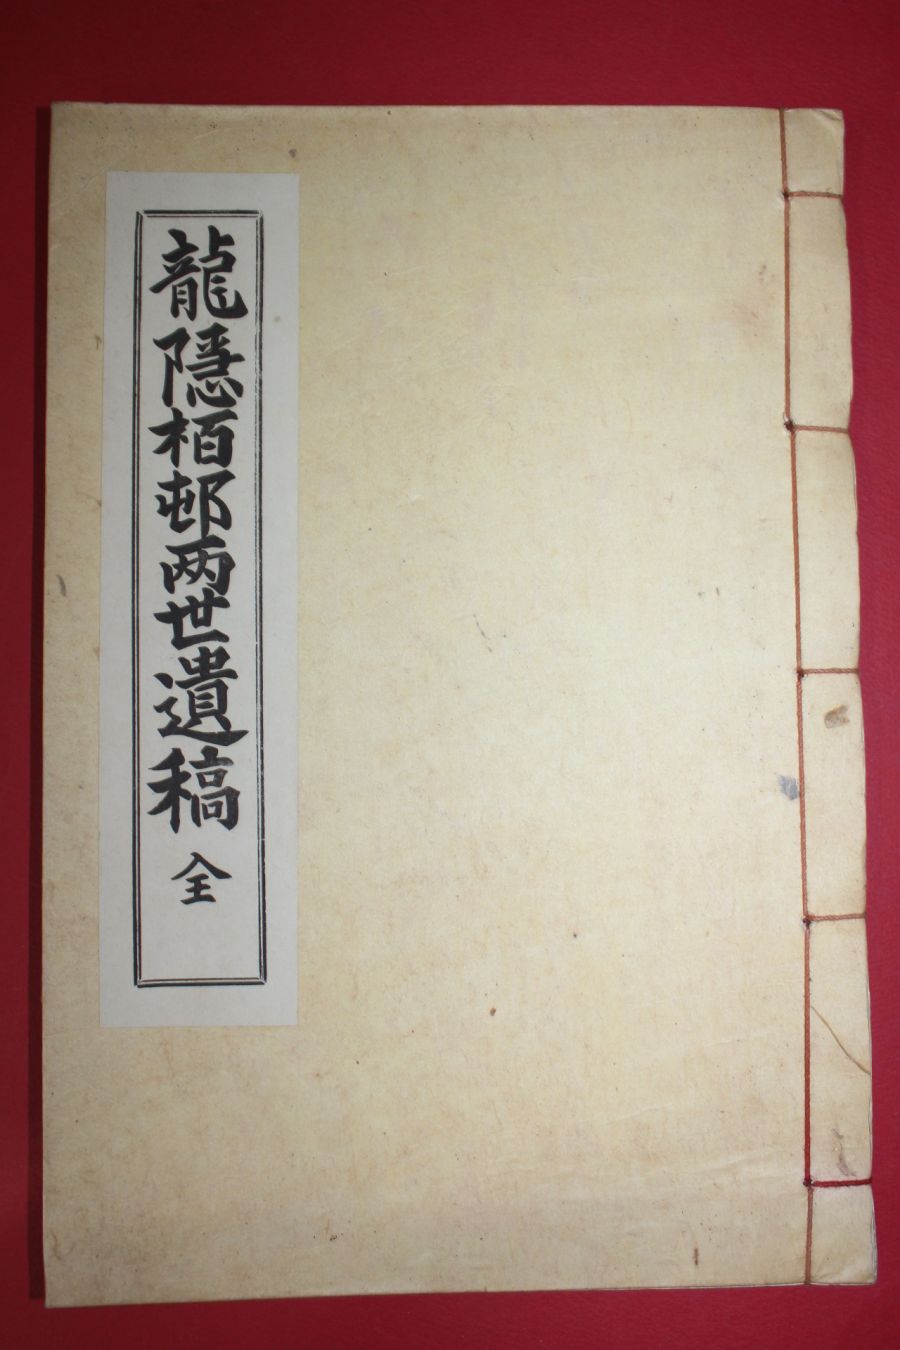 龍隱栢邨两世遺稿 全